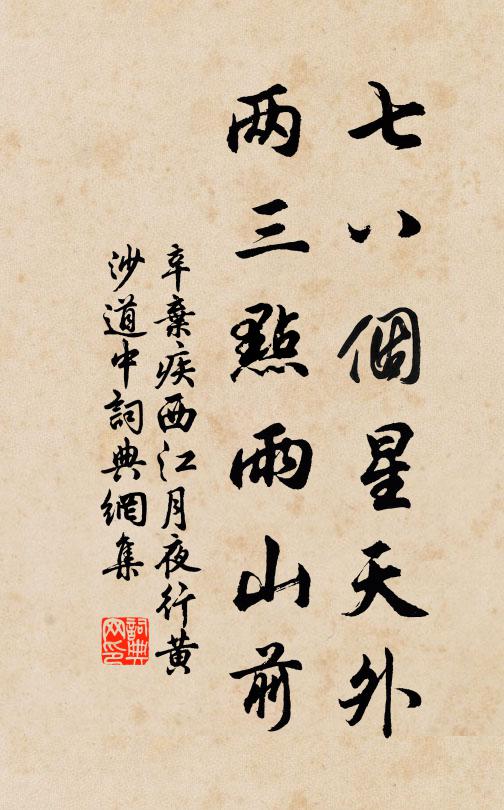 七八個星天外
两三點雨山前
辛棄疾西江月夜行黄
沙道中詞典網集
詞典网印